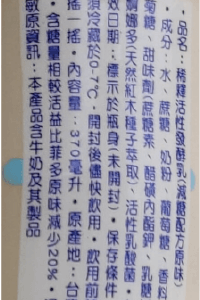 •品名：稀釋活性發酵乳(減糖配方原味)
•成分：水、蔗糖、奶粉、葡萄糖、香料
葡糖、甜味劑(蔗糖素、醋磺內酯鉀、乳糖
婀娜多(天然紅木種子萃取)、活性乳酸菌•
效日期：標示於瓶身(未開封)•保存條件
須冷藏於0-7℃，開封後儘快飲用，飲用前
搖一搖•內容量：370毫升•原產地：台
•含糖量相較活益比菲多原味減少20%•
敏原資訊：本產品含牛奶及其製品